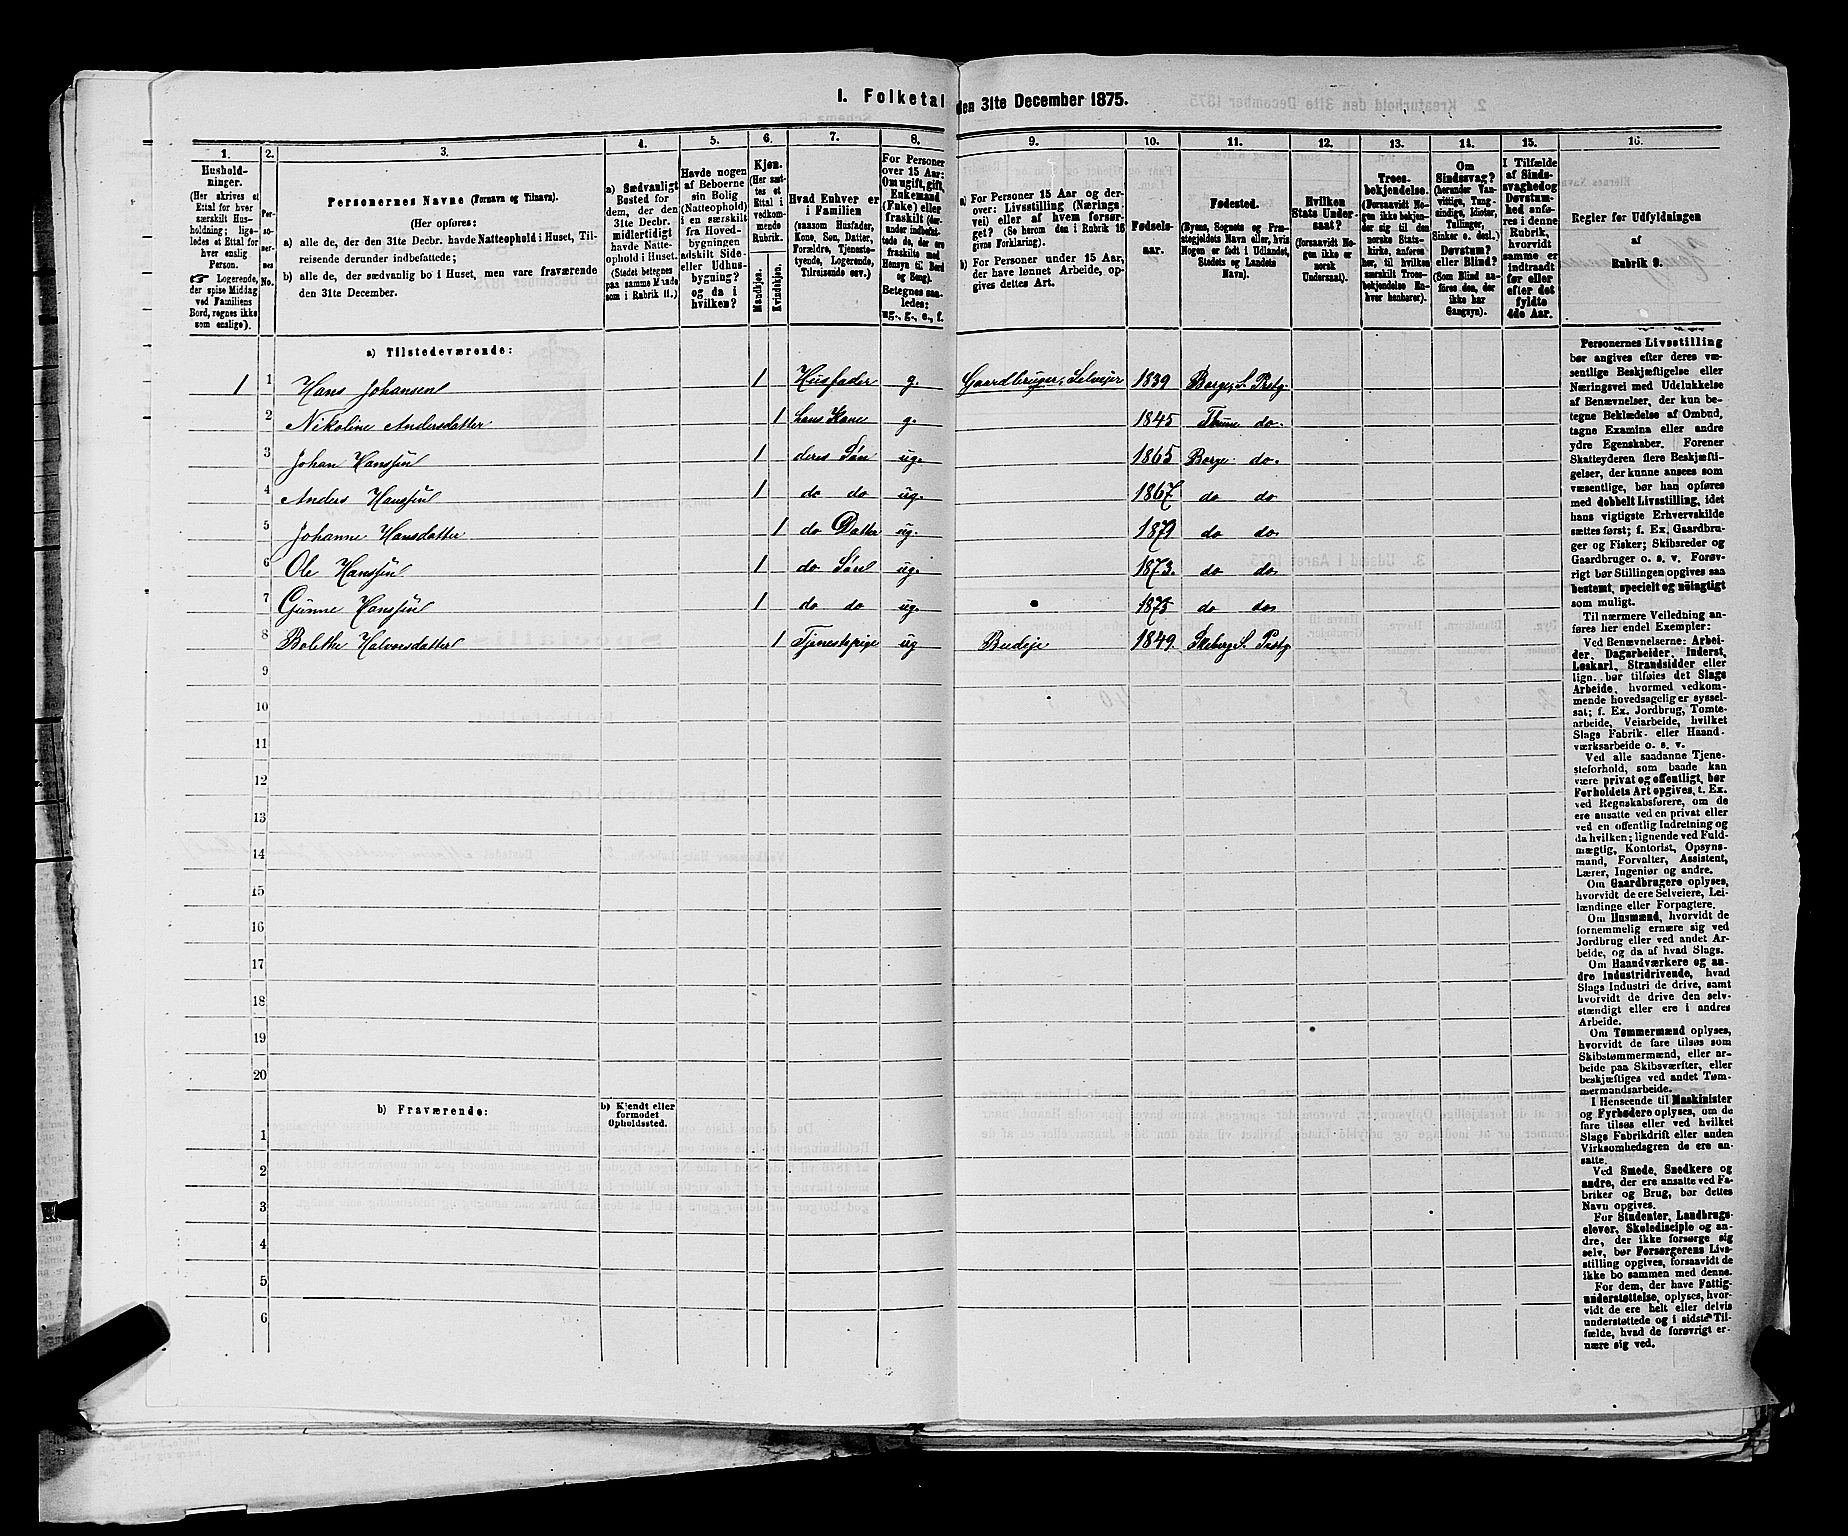 I. Folketal den 31te December 1875.
1. 2. 3. 4. 5. 6. 7. 8. 9. 10. 11. 12. 13. 14. 15. 16.
Hushold-
ninger.
(Her skrives et
Ettal for hver
særskilt Hus-
holdning; lige-
ledes et Ettal for
hver enslig
Person.
Logerende,
der spise Middag
ved Familiens
Bord, regnes ikke
som enslige).
Per-
so-
ner-
nes
No.
Personernes Navne (Fornavn og Tilnavn).
(Her opføres:
a) alle de, der den 31te Decbr. havde Natteophold i Huset, Til-
reisende derunder indbefattede;
b) alle de, der sædvanlig bo i Huset, men vare fraværende
den 31te December.
a) Sædvanligt
Bosted for
dem, der den
31te Decbr.
midlertidigt
havde Natte-
ophold i Huset.
(Stedet betegnes
paa samme Maade
som i Rubrik 11.)
Havde nogen
af Beboerne
sin Bolig
(Natteophold)
i en særskilt
fra Hoved-
bygningen
adskilt Side-
eller Udhus-
bygning?
og da i
hvilken?
Kjøn.
(Her sæt-
tes et
Ettal i
vedkom-
mende
Rubrik.
Mandkjøn.
Kvindekjøn.
Hvad Enhver er
i Familien
(saasom Husfader,
Kone, Søn, Datter,
Forældre, Tjeneste-
tyende, Logerende,
Tilreisende osv.)
For Personer
over 15 Aar:
Om ugift, gift,
Enkemand
(Enke) eller
fraskilt (der-
under indbefat-
tede de, der ere
fraskilte med
Hensyn til Bord
og Seng).
Betegnes saa-
ledes:
ug., g., e., f.
a) For Personer 15 Aar og der-
over: Livsstilling (Nærings-
vei) eller af hvem forsør-
get? (Se herom den i Rubrik 16
givne Forklaring).
b) For Personer under 15 Aar,
der have lønnet Arbeide, op-
gives dettes Art.
Fødsels-
aar.
Fødested.
(Byens, Sognets og Præ-
stegjeldets Navn eller, hvis
Nogen er født i Udlandet,
Stedets og Landets
Navn).
Hvilken
Stats Under-
saat?
(forsaavidt No-
gen ikke er
norsk
Undersaat).
Troes-
bekjendelse.
(Forsaavidt No-
gen ikke bekjen-
der sig til den
norske Stats-
kirke, anføres
her, til hvilken
særskilt Troes-
bekjendelse En-
hver henhører).
Om
Sindssvag?
(herunder Van-
vittige, Tung-
sindige, Idioter,
Tullinger,
Sinker o. desl.)
Døvstum?
eller Blind?
(Som Blind an-
føres den, der
ikke har
Gangsyn).
I Tilfælde
af Sinds-
svaghed og
Døvstum-
hed anfø-
res i denne
Rubrik,
hvorvidt
samme er
indtraadt
før eller
efter det
fyldte
4de Aar.
Regler for Udfyldningen
af
Rubrik 9.
a) Tilstedeværende:
1 1 Hans Johansen 1 Husfader g. Gaardbruger, Selveier 1839 Borge, S. Prstg
2 Nikoline Andersdatter 1 hans Kone g. 1845 Thune do.
3 Johan Hanssen 1 deres Søn ug. 1865 Borge do.
4 Anders Hanssen 1 do do ug. 1867 do do
5 Johanne Hansdatter 1 do Datter ug. 1879 do do
6 Ole Hanssen 1 do Søn ug. 1873. do do
7 Gunne Hanssen 1 do do ug. 1875 do do
8 Bolethe Halvorsdatter 1 Tjenestepige ug Budeje 1849. Skeberg S. Prstg
9
10
11
12
13
14
15
16
17
18
19
20
b) Fraværende:
b) Kjendt eller
formodet
Opholdssted.
1
2
3
4
5
6
Personernes Livsstilling
bør angives efter deres væ-
sentlige Beskjæftigelse eller
Næringsvei med Udelukkelse
af Benævnelser, der kun be-
tegne Beklædelse af Ombud,
tagne Examina eller andre
ydre Egenskaber. Forener
Skatteyderen flere Beskjæfti-
gelser, der kunne ansees som
væsentlige, bør han opføres
med dobbelt Livsstilling, idet
hans vigtigste Erhvervskilde
sættes først; f. Ex. Gaardbru-
ger og Fisker; Skibsreder og
Gaardbruger o. s. v. Forøv-
rigt bør Stillingen opgives saa
bestemt, specielt og nøiagtigt
som muligt.
Til nærmere Veiledning an-
føres her endel Exempler:
Ved Benævnelserne: Arbei-
der, Dagarbeider, Inderst,
Løskarl, Strandsidder eller
lign. bør tilføies det Slags
Arbeide, hvormed vedkom-
mende hovedsagelig er syssel-
sat; f. Ex. Jordbrug, Tomte-
arbeide, Veiarbeide, hvilket
Slags Fabrik- eller Haand-
værksarbeide o. s. v.
Ved alle saadanne Tjene-
steforhold, som baade kan
være privat og offentligt, bør
Forholdets Art opgives, t. Ex.
ved Regnskabsførere, om de
ere ansatte ved en privat eller
ved en offentlig Indretning og
da hvilken; lignende ved Fuld-
mægtig, Kontorist, Opsyns-
mand, Forvalter, Assistent,
Lærer, Ingeniør og andre.
Om Gaardbrugere oplyses,
hvorvidt de ere Selveiere, Lei-
lændinge eller Forpagtere.
Om Husmænd, hvorvidt de
fornemmelig ernære sig ved
Jordbrug eller ved andet Ar-
beide, og da af hvad Slags.
Om Haandværkere og an-
dre Industridrivende, hvad
Slags Industri de drive, samt
hvorvidt de drive den selv-
stændigt eller ere i andres
Arbeide.
Om Tømmermænd oplyses,
hvorvidt de fare tilsøs som
Skibstømmermænd, eller ar-
beide paa Skibsværfter, eller
beskjæftiges ved andet Tøm-
mermandsarbeide.
I Henseende til Maskinister
og Fyrbødere oplyses, om de
fare tilsøs eller ved hvilket
Slags Fabrikdrift eller anden
Virksomhedsgren de ere an-
satte.
Ved Smede, Snedkere og
andre, der ere ansatte ved Fa-
briker og Brug, bør dettes
Navn opgives.
For Studenter, Landbrugs-
elever, Skoledisciple og an-
dre, der ikke forsørge sig
selv, bør Forsørgerens Livs-
stilling opgives, forsaavidt de
ikke bo sammen med denne.
For dem, der have Fattig-
understøttelse, oplyses, hvor-
vidt de ere helt eller delvis
understøttede og i sidste Til-
fælde, hvad de forøvrigt er-
nære sig ved.